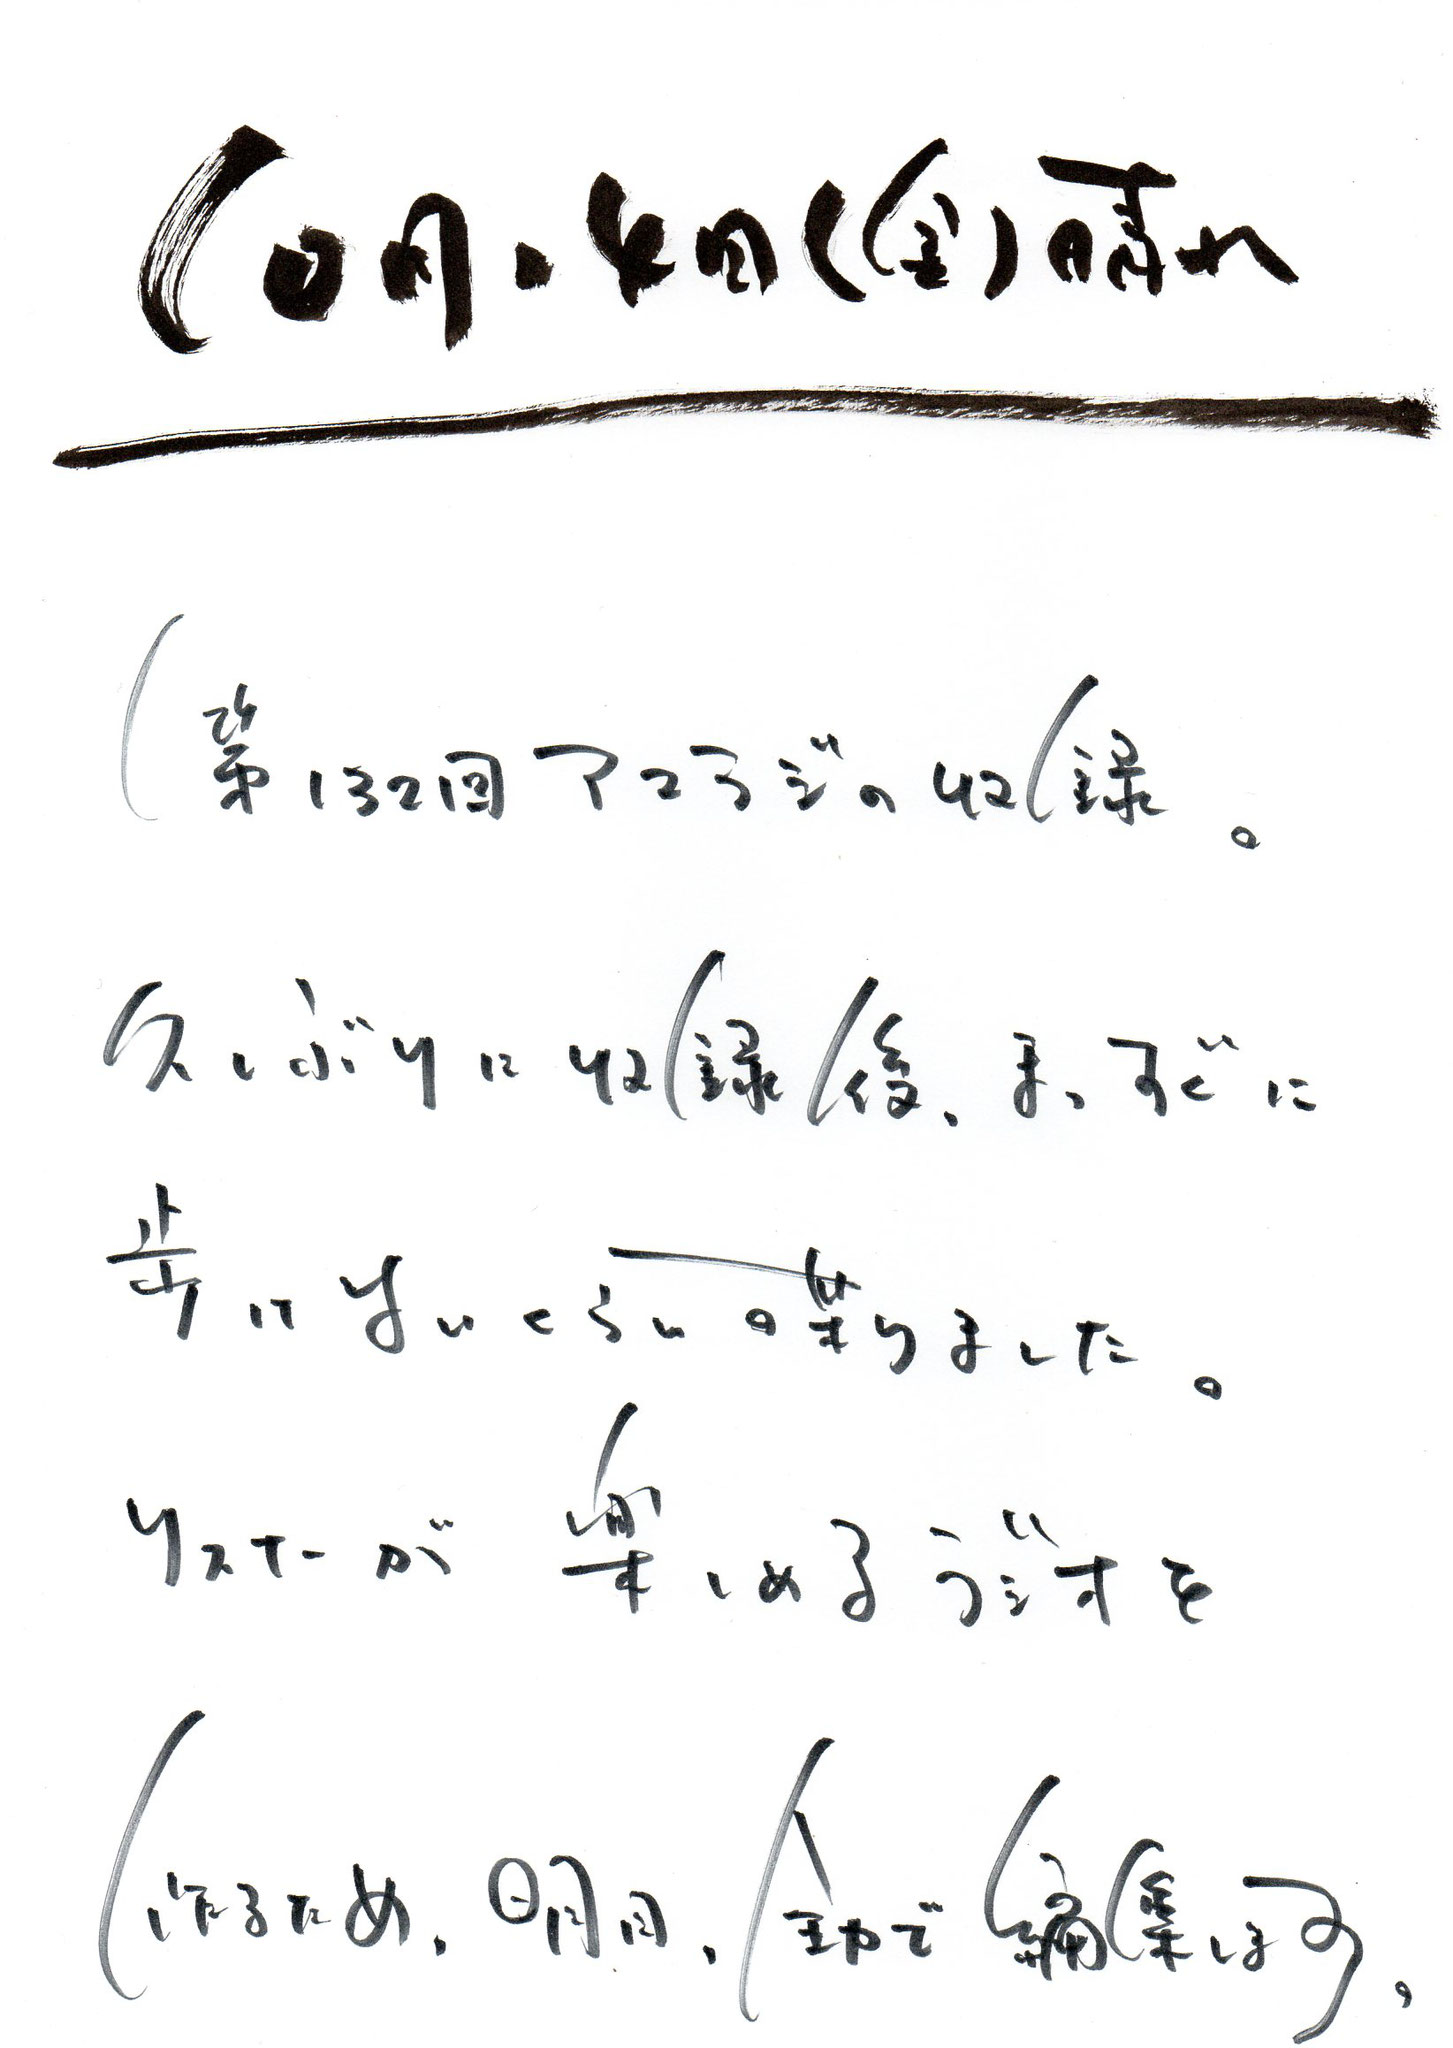 10月・4日(金)晴れ
第132回アコラジの収録。
久しぶりに収録後、まっすぐに
歩けないくらい喋りました。
リスナーが楽しめるラジオを
作るため、明日、全力で編集します。